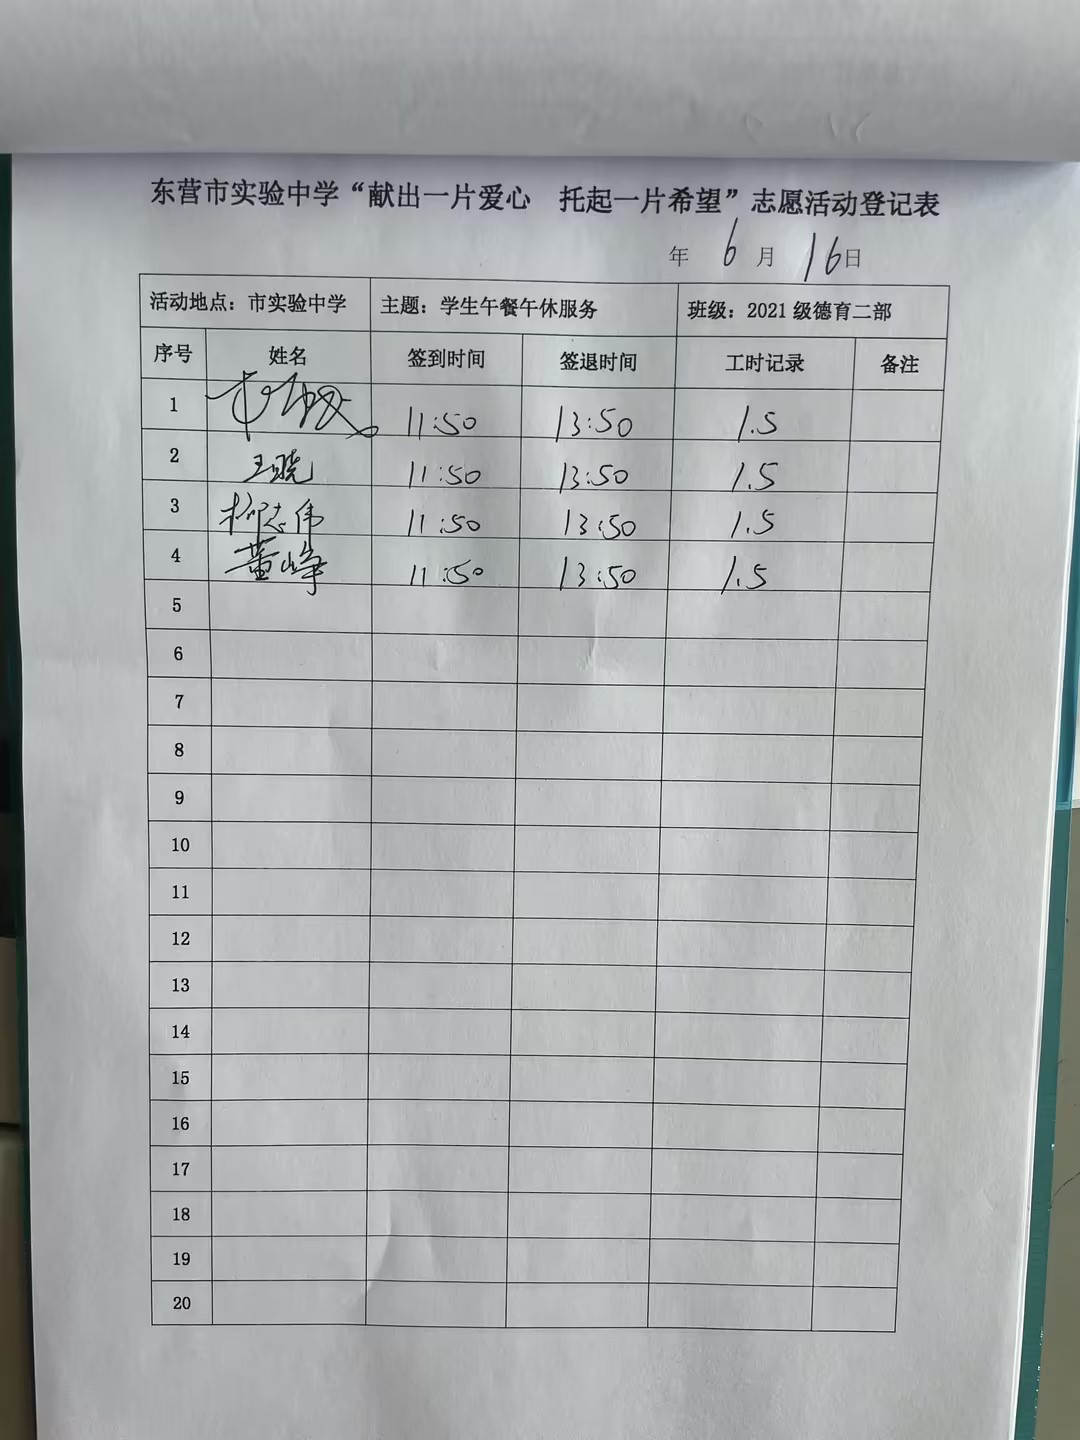 东营市实验中学“献出一片爱心 托起一片希望”志愿活动登记表
年 6 月 16 日
活动地点：市实验中学 主题：学生午餐午休服务 班级：2021 级德育二部
序号 姓名 签到时间 签退时间 工时记录 备注
1 11:50 13:50 1.5
2 王晓 11:50 13:50 1.5
3 柳志伟 11:50 13:50 1.5
4 董峥 11:50 13:50 1.5
5
6
7
8
9
10
11
12
13
14
15
16
17
18
19
20